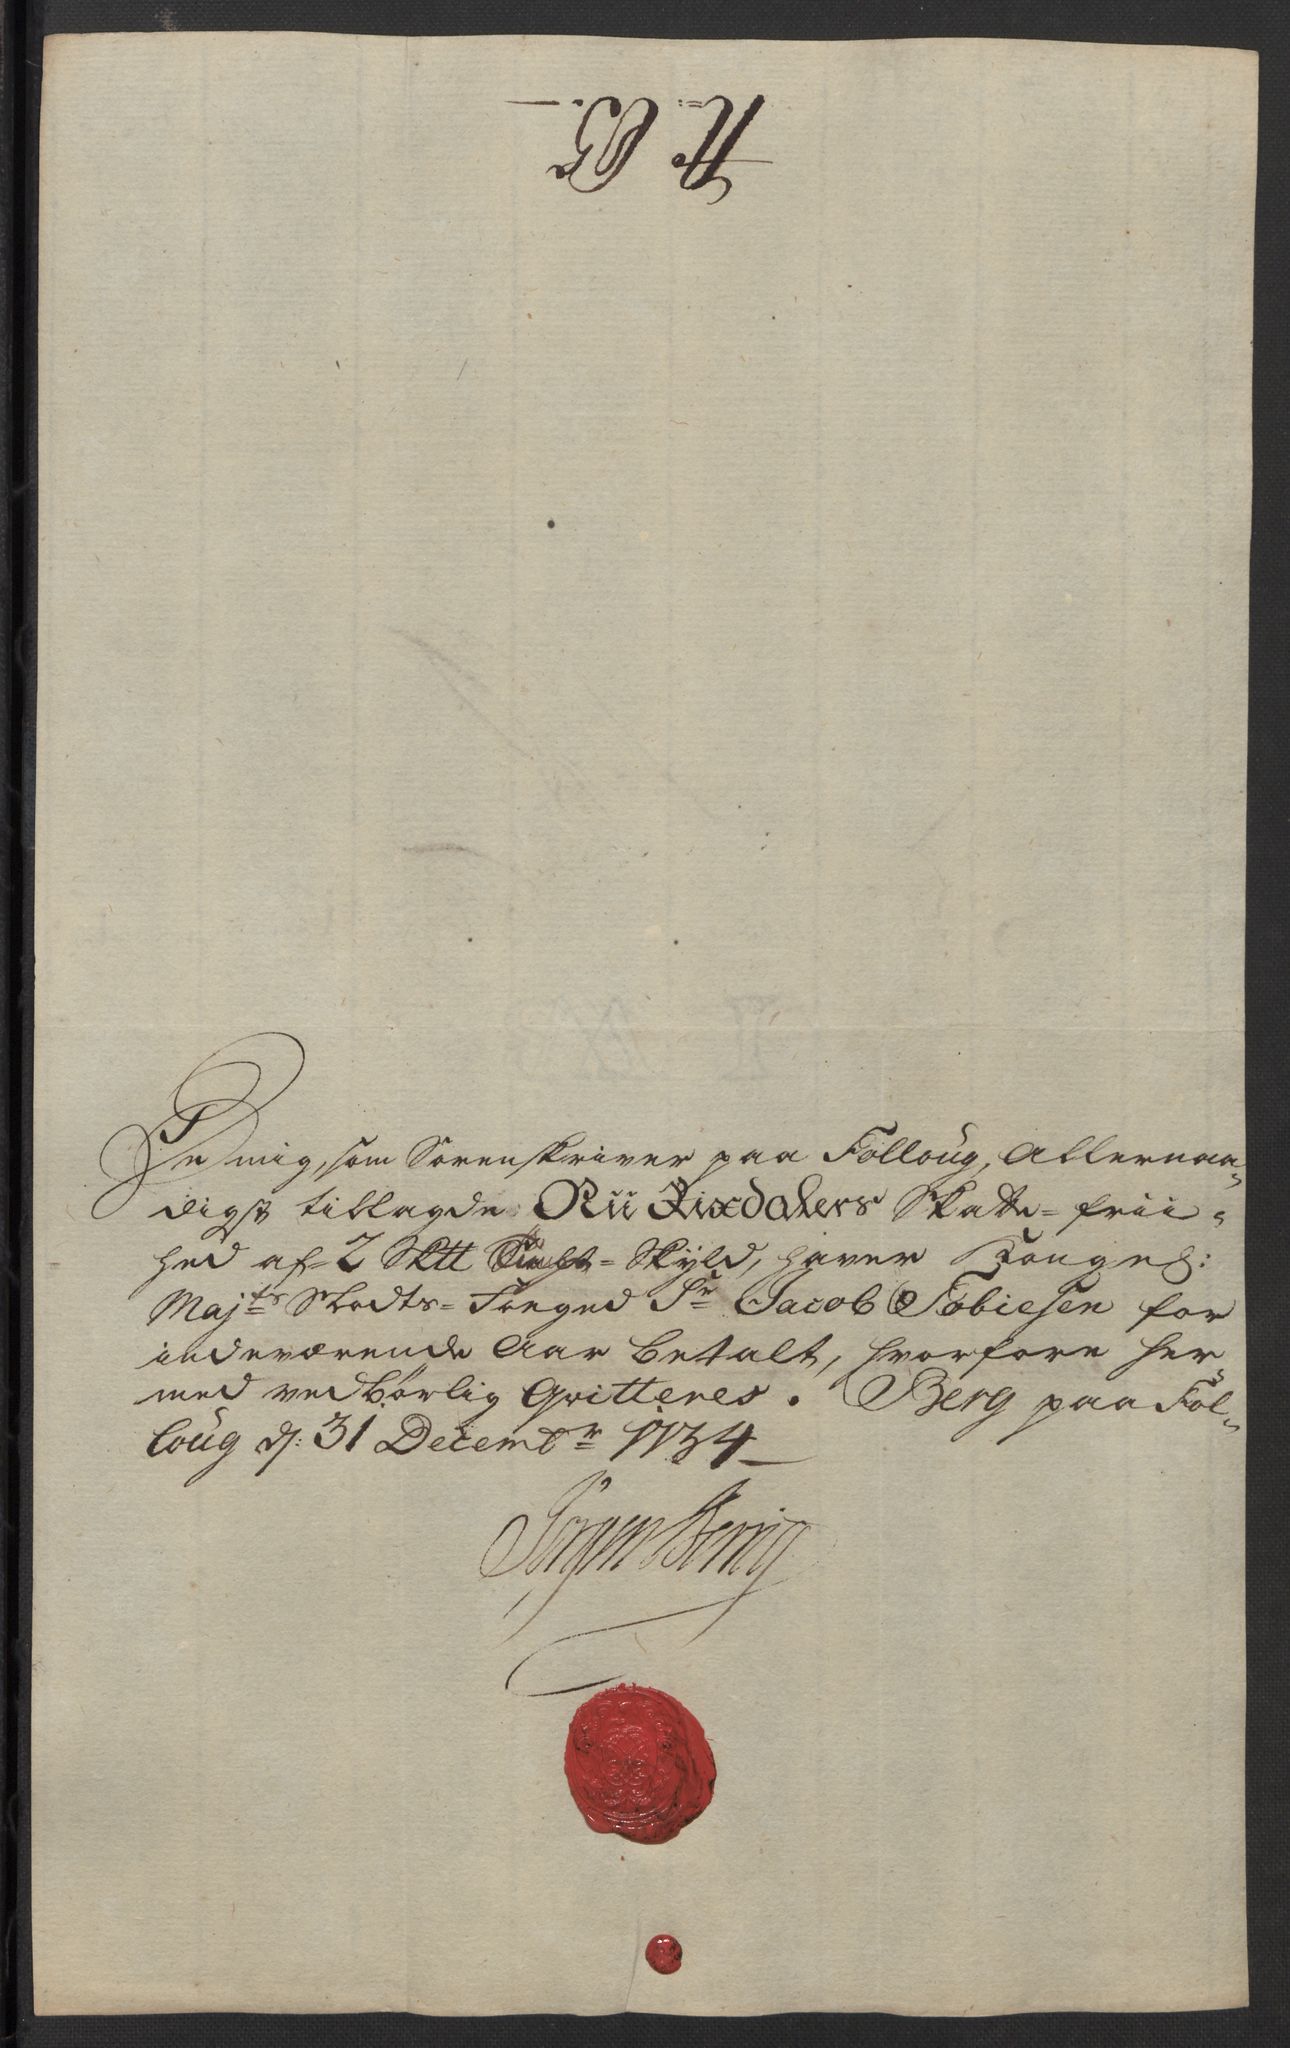 No 65.
De mig, som Sorenskriver paa Folloug, Allernaa-
digst tillagde Nii Rixdalers Skatte-frii-
hed af 2 Skll - Skyld, haver Kongel:
Majts Stadts-Foaged Sr Jacob Tobiesen for
indeværende Aar betalt, hvorfore her
med vedbørlig Qvitteres. Berg paa Fol-
loug d: 31 Decembr 1734
Jørgen